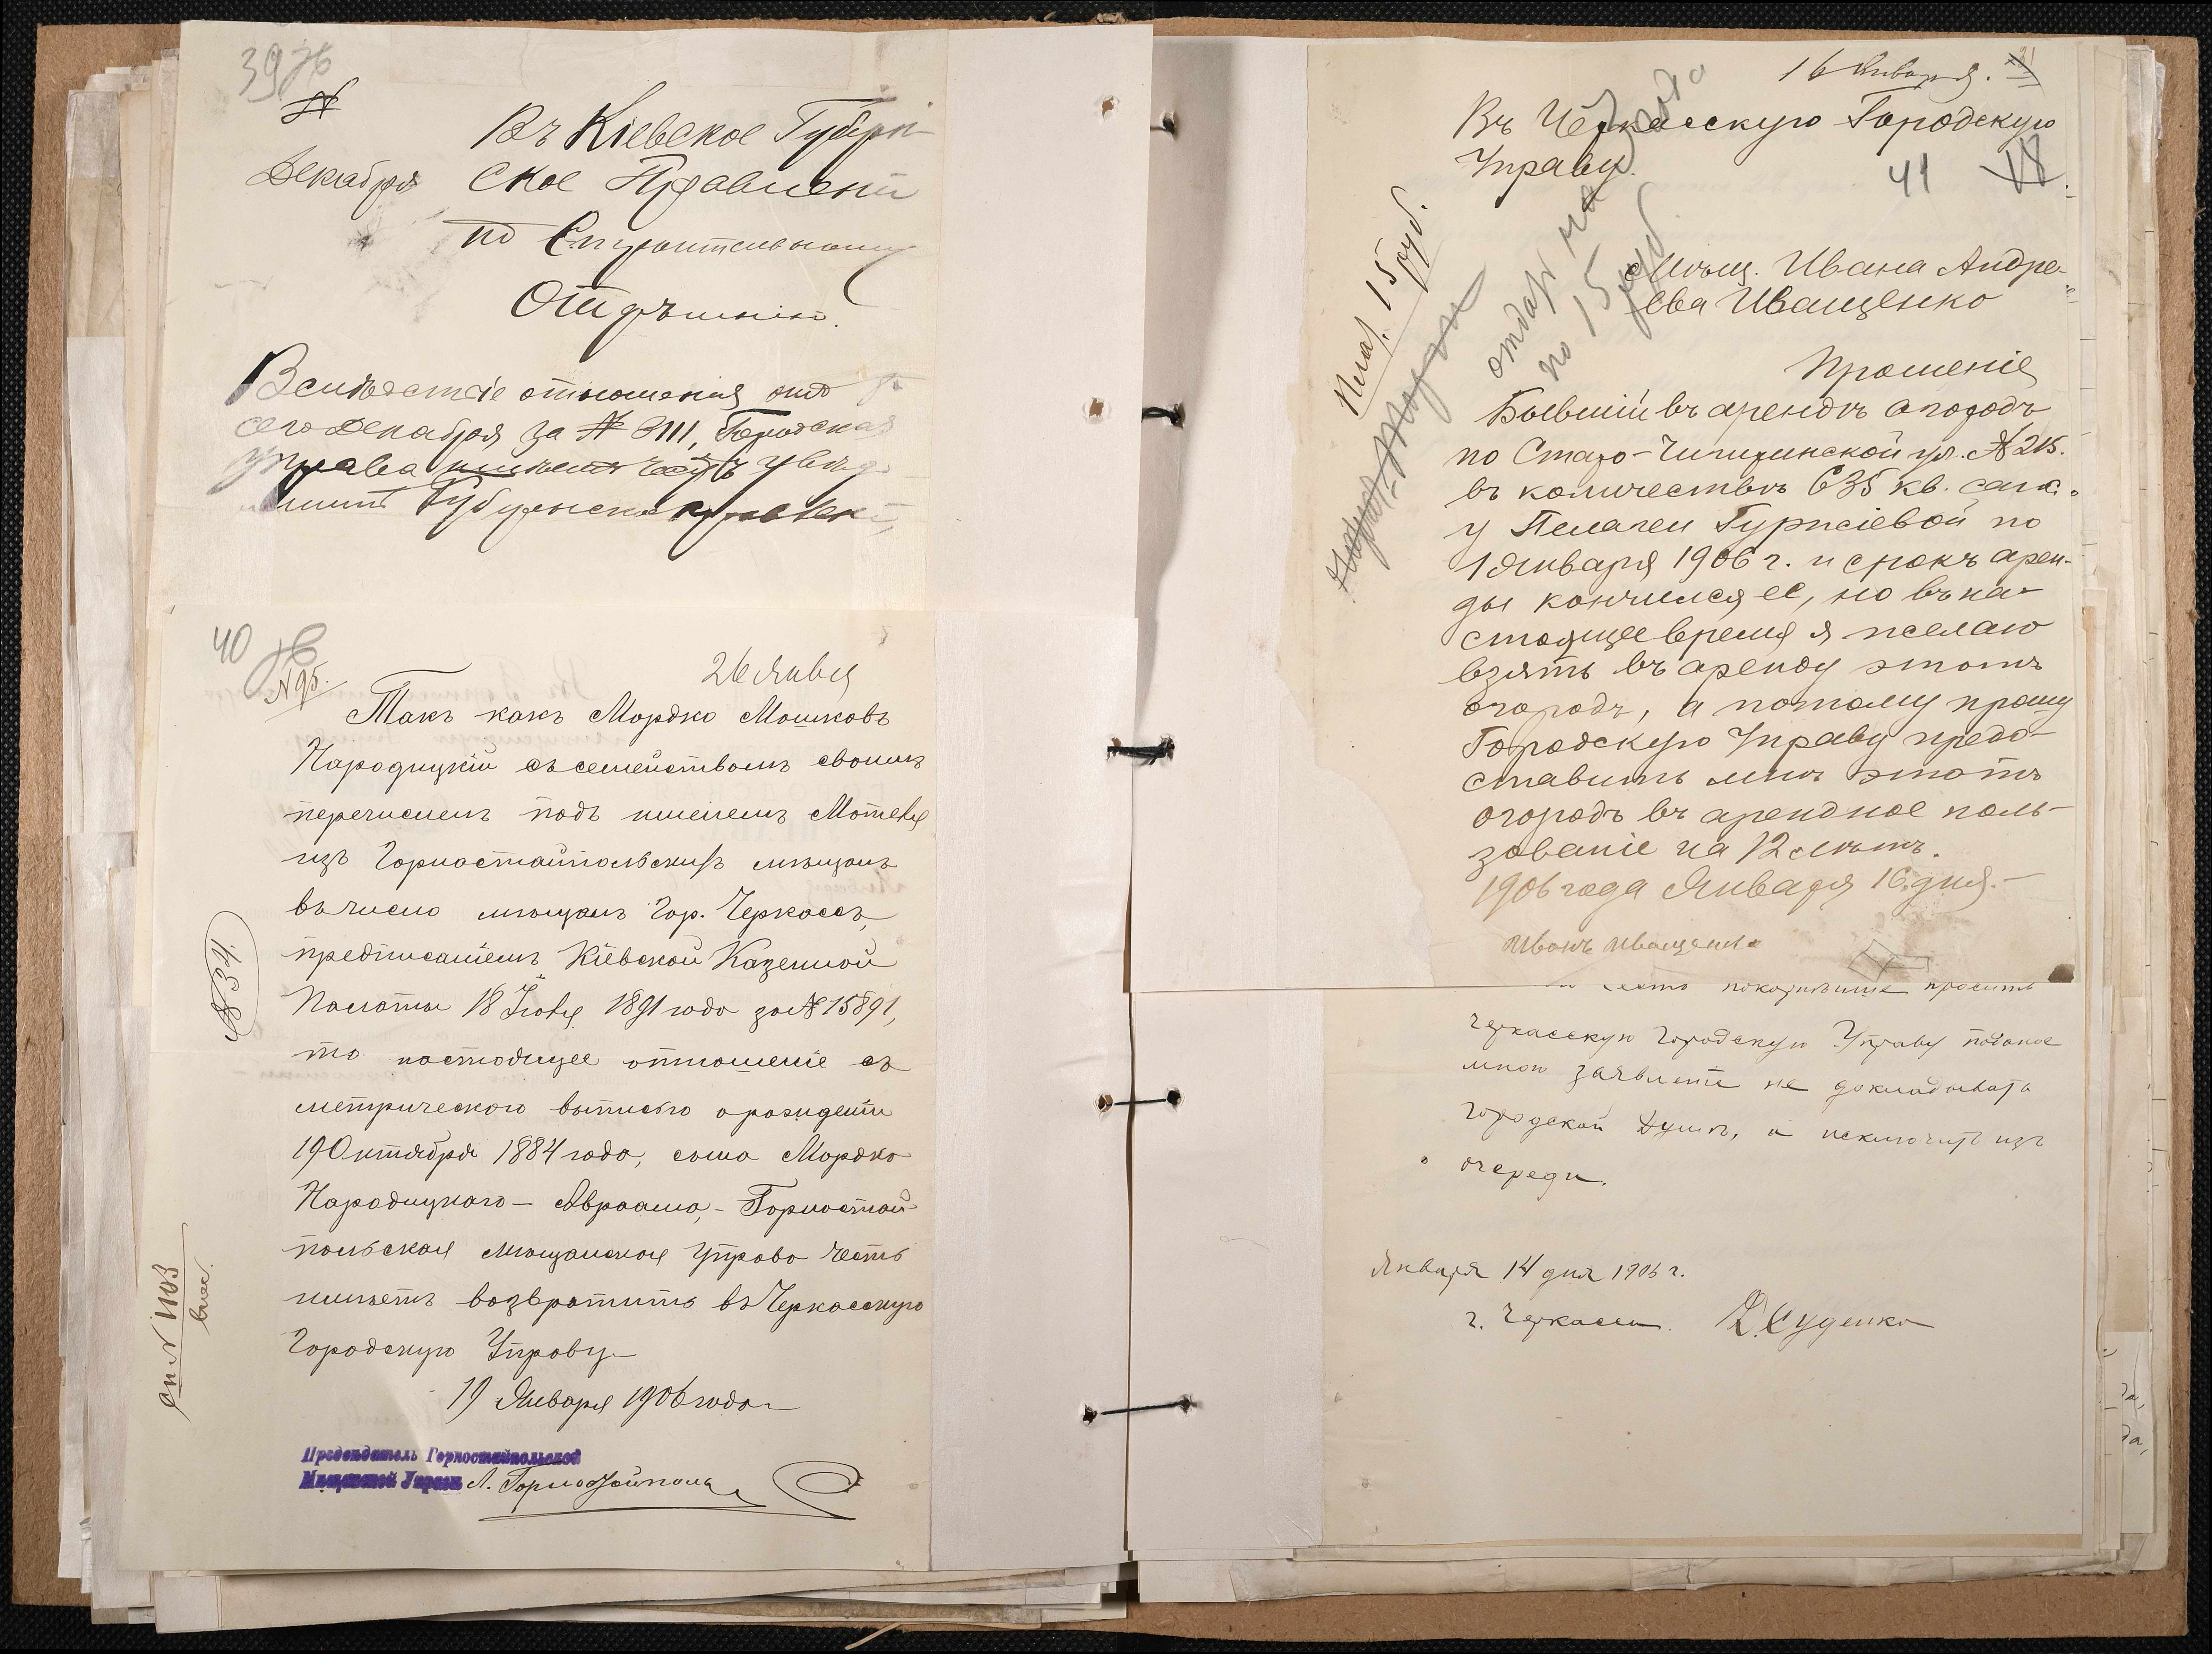 39
№
Декабря
Въ Кіевское Губерн-
ское Правлені
по Строительному
Отдѣленію.
Вслѣдствіе отношенія отъ
сего Декабря за № 3111, Городская
Управа имѣетъ честь увѣд
Губернское
40
№ 95.
26 Январ
Такъ какъ Мордко Мошковъ
Народицкій съ семействомъ своимъ
перечисленъ подъ именемъ Мотеля
изъ Горностайпольскихъ мѣщанъ
въ число мѣщанъ Гор. Черкассъ,
предписаніемъ Кіевской Казенной
Палаты 18 Іюля 1891 года за № 15891,
то настоящее отношеніе съ
метрическою выписью о рожденіи
19 Октября 1884 года, сына Мордко
Народицкаго – Авраама, – Горностай-
польская мѣщанская Управа честь
имѣетъ возвратить въ Черкасскую
Городскую Управу.
19 Января 1906 года
Предсѣдатель Горностайпольской
Мѣщанской Управы Л. Горностайполь
№ 34.
№ 1103
16 Января.
Въ Черкасскую Городскую
Управу.
41
Мѣщ. Ивана Андре-
ева Иващенко
15 руб.
отдать на
по 15 руб
Прошеніе
Бывшій въ арендѣ огородъ
по Старо-Чигиринской ул. № 215.
въ количествѣ 635 кв. саж.
у Пелагеи по
1 Января 1906 г. и срокъ арен-
ды кончился ее, но въ на-
стоящее время я желаю
взять въ аренду этотъ
огородъ, а потому прошу
Городскую Управу предо-
ставить мнѣ этотъ
огородъ въ арендное поль-
зованіе на 12 лѣтъ.
1906 года Января 16 дня.–
Иванъ Иващенко
честь покорнѣйше просить
Черкасскую Городскую Управу поданое
мною заявленіе не докладывать
Городской Думѣ, а исключить изъ
очереди.
Января 14 дня 1906 г.
г. Черкассы. Суденко